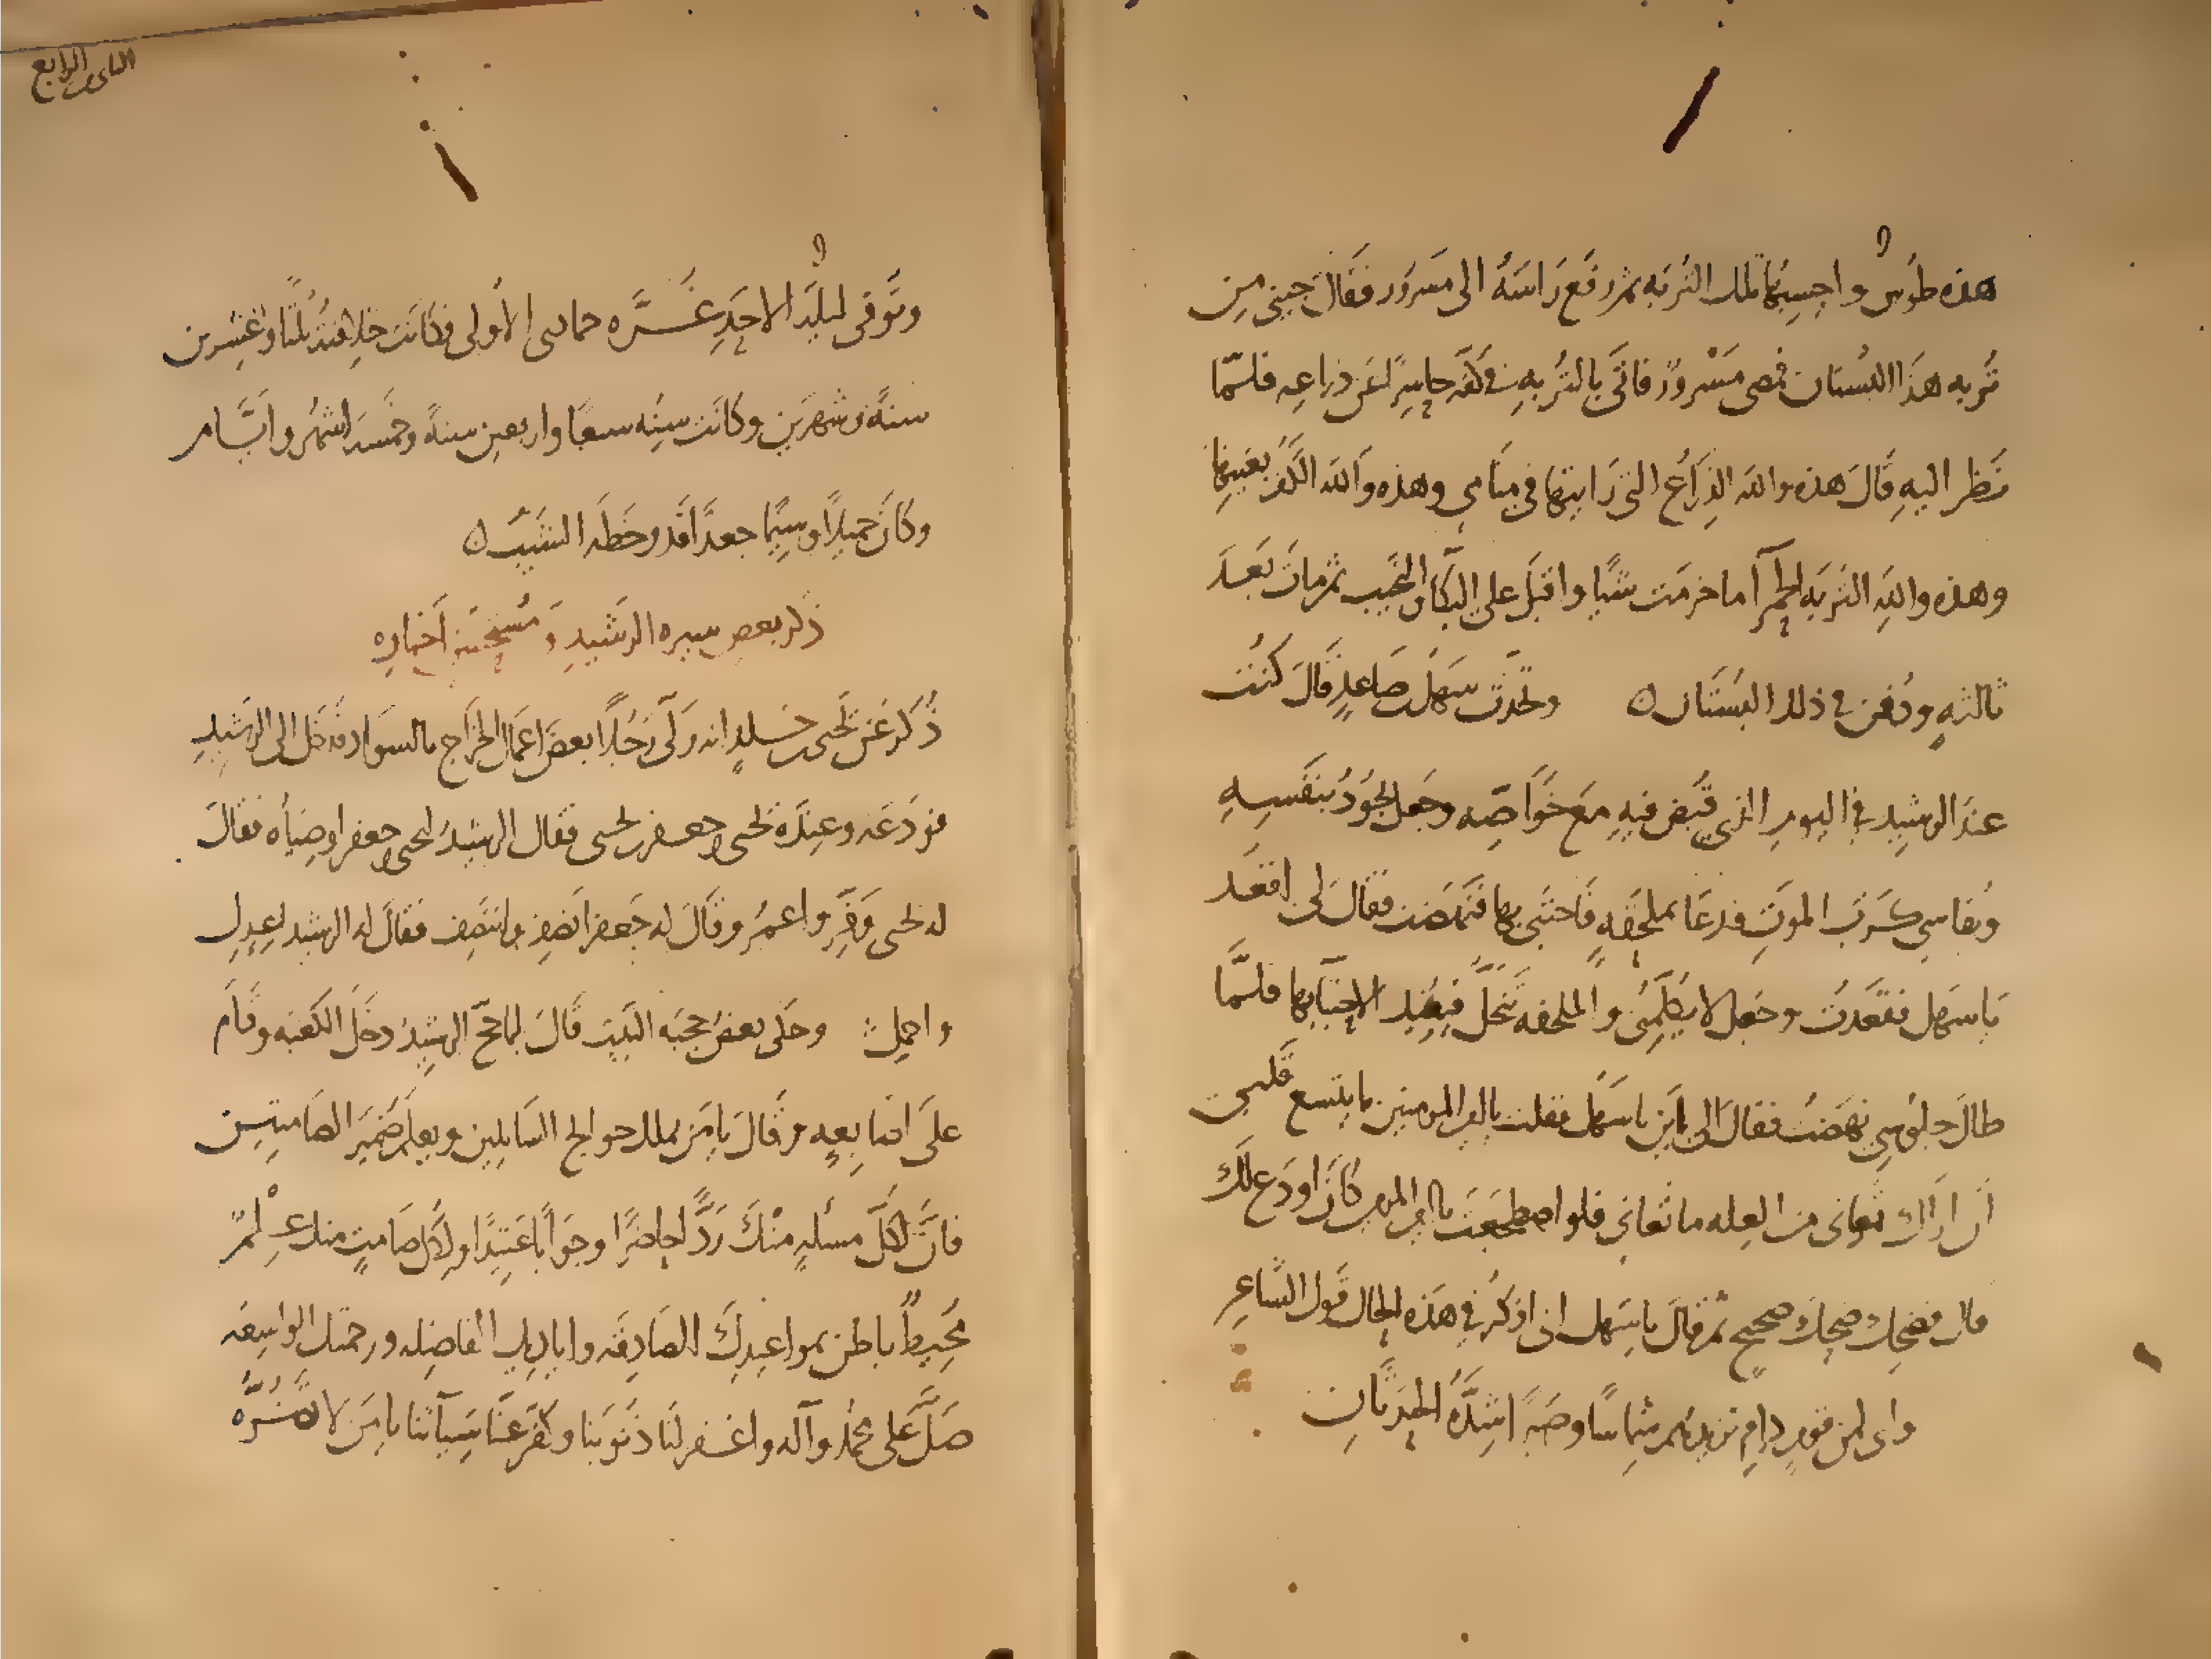 هذه طوس واحسبها تلك التربه ثم رفع راسه الى مسرور فقال جيني من
تربه هذا البستان فمضى مسرور فاتى بالتربه في كفه حاسرا عن ذراعه فلما
نظر اليه قال هذه والله الذراع التي رايتها في منامي وهذه والله الكف بعينها
وهذه والله التربه الحمرا ما خرمت شيا واقبل على البكاء والنحيب ثم مات بعد
ثالثه ودفن في ذلك البستان ٥ وتحدث سهل صاعد قال كنت
عند الرشيد في اليوم الذي قبض فيه مع خواصه وجعل يجود بنفسه
ويقاسي كرب الموت فدعا بملحفه فاحتبى بها فنهضت فقال لي اقعد
يا سهل فقعدت وجعل لا يكلمني والملحفه تنحل فيعيد الاحتبا بها فلما
طال جلوسي نهضت فقال الى اين يا سهل فقلت يا امير المومنين ما يتسع قلبي
ان اراك تعاني من العله ما تعاني فلو اضطجعت يا امير المومنين كان اودع لك
قال فضحك ضحك صحيح ثم قال يا سهل اني اذكر في هذه الحال قول الشاعر
واني لمن قوم كرام تزيدهم شماسا وصبرا شدة الحدثان
الثاني الرابع
وتوفي ليلة الاحد غره جمادى الاولى فكانت خلافته ثلثا وعشرين
سنة وشهرين وكانت سنه سبعا واربعين سنة وخمسة اشهر وايام
وكان جميلا وسيما جعدا قد وخطه الشيب ٥
ذكر بعض سيره الرشيد ومستحسن اخباره
ذكر عن يحيى بن خالد انه ولى رجلا بعض اعمال الخراج بالسواد فدخل الى الرشيد
فودعه وعنده يحيى وجعفر بن يحيى فقال الرشيد ليحيى وجعفر اوصياه فقال
له يحيى وفر واعمر وقال له جعفر انصف وانتصف فقال له الرشيد اعدل
واحمل وحكى بعض حجبه البيت قال لما حج الرشيد دخل الكعبه وقام
على اصابعه وقال يا من يملك حوايج السايلين ويعلم ضمير الصامتين
فان لكل مسئله منك ردا حاضرا وجوابا عتيدا ولكل صامت منك علم
محيط باطن بمواعيدك الصادقه واياديك الفاضله ورحمتك الواسعه
صل على محمد وآله واغفر لنا ذنوبنا وكفر عنا سيآتنا يا من لا تضره